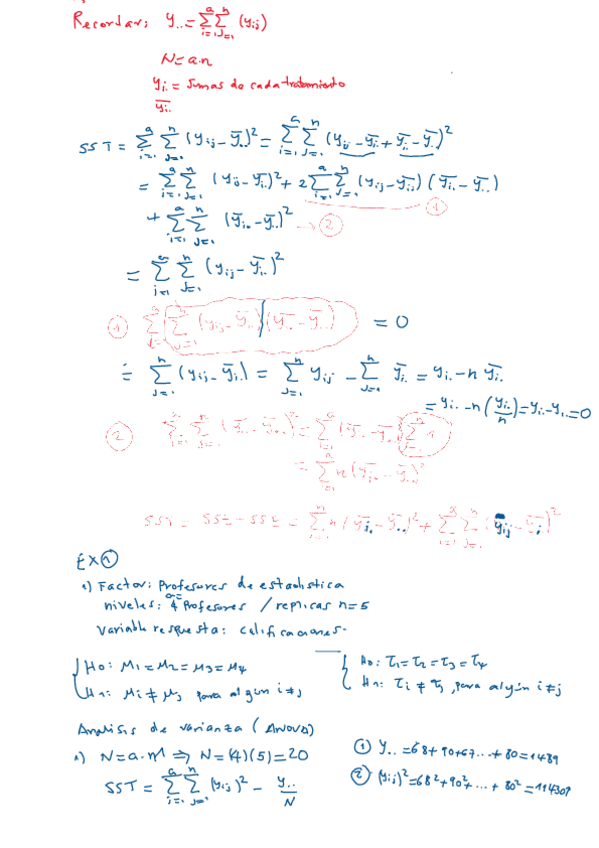 Recordar: y.. = Σ_{i=1}^{a} Σ_{j=1}^{n} (y_{ij})
N = a.n
y_{i.} = sumas de cada tratamiento
ȳ_{i.}
SST = Σ_{i=1}^{a} Σ_{j=1}^{n} (y_{ij} - ȳ..)² = Σ_{i=1}^{a} Σ_{j=1}^{n} (y_{ij} - ȳ_{i.} + ȳ_{i.} - ȳ..)²
= Σ_{i=1}^{a} Σ_{j=1}^{n} (y_{ij} - ȳ_{i.})² + 2 Σ_{i=1}^{a} Σ_{j=1}^{n} (y_{ij} - ȳ_{i.}) (ȳ_{i.} - ȳ..) ①
+ Σ_{i=1}^{a} Σ_{j=1}^{n} (ȳ_{i.} - ȳ..)² → ②
= Σ_{i=1}^{a} Σ_{j=1}^{n} (y_{ij} - ȳ_{i.})²
① Σ_{i=1}^{a} Σ_{j=1}^{n} (y_{ij} - ȳ_{i.}) (ȳ_{i.} - ȳ..) = 0
= Σ_{j=1}^{n} (y_{ij} - ȳ_{i.}) = Σ_{j=1}^{n} y_{ij} - Σ_{j=1}^{n} ȳ_{i.} = y_{i.} - n ȳ_{i.}
= y_{i.} - n (y_{i.}/n) = y_{i.} - y_{i.} = 0
② Σ_{i=1}^{a} Σ_{j=1}^{n} (ȳ_{i.} - ȳ..)² = Σ_{i=1}^{a} (ȳ_{i.} - ȳ..)² Σ_{j=1}^{n} 1
= Σ_{i=1}^{a} n (ȳ_{i.} - ȳ..)²
SST = = Σ n (ȳ_{i.} - ȳ..)² + Σ_{i=1}^{a} Σ_{j=1}^{n} (y_{ij} - ȳ_{i.})²
EX①
1) Factor: Profesores de estadística
niveles: a= 4 Profesores / replicas n=5
Variable respuesta: calificaciones.
{ H0: μ1 = μ2 = μ3 = μ4
H1: μi ≠ μj para algún i≠j
{ H0: τ1 = τ2 = τ3 = τ4
H1: τi ≠ τj, para algún i≠j
Analisis de varianza (ANOVA)
1) N = a.n ⇒ N = (4)(5) = 20
SST = Σ_{i=1}^{a} Σ_{j=1}^{n} (y_{ij})² - y../N
① y.. = 68 + 90 + 67 ... + 80 = 1489
② (y_{ij})² = 68² + 90² + ... + 80² = 114307